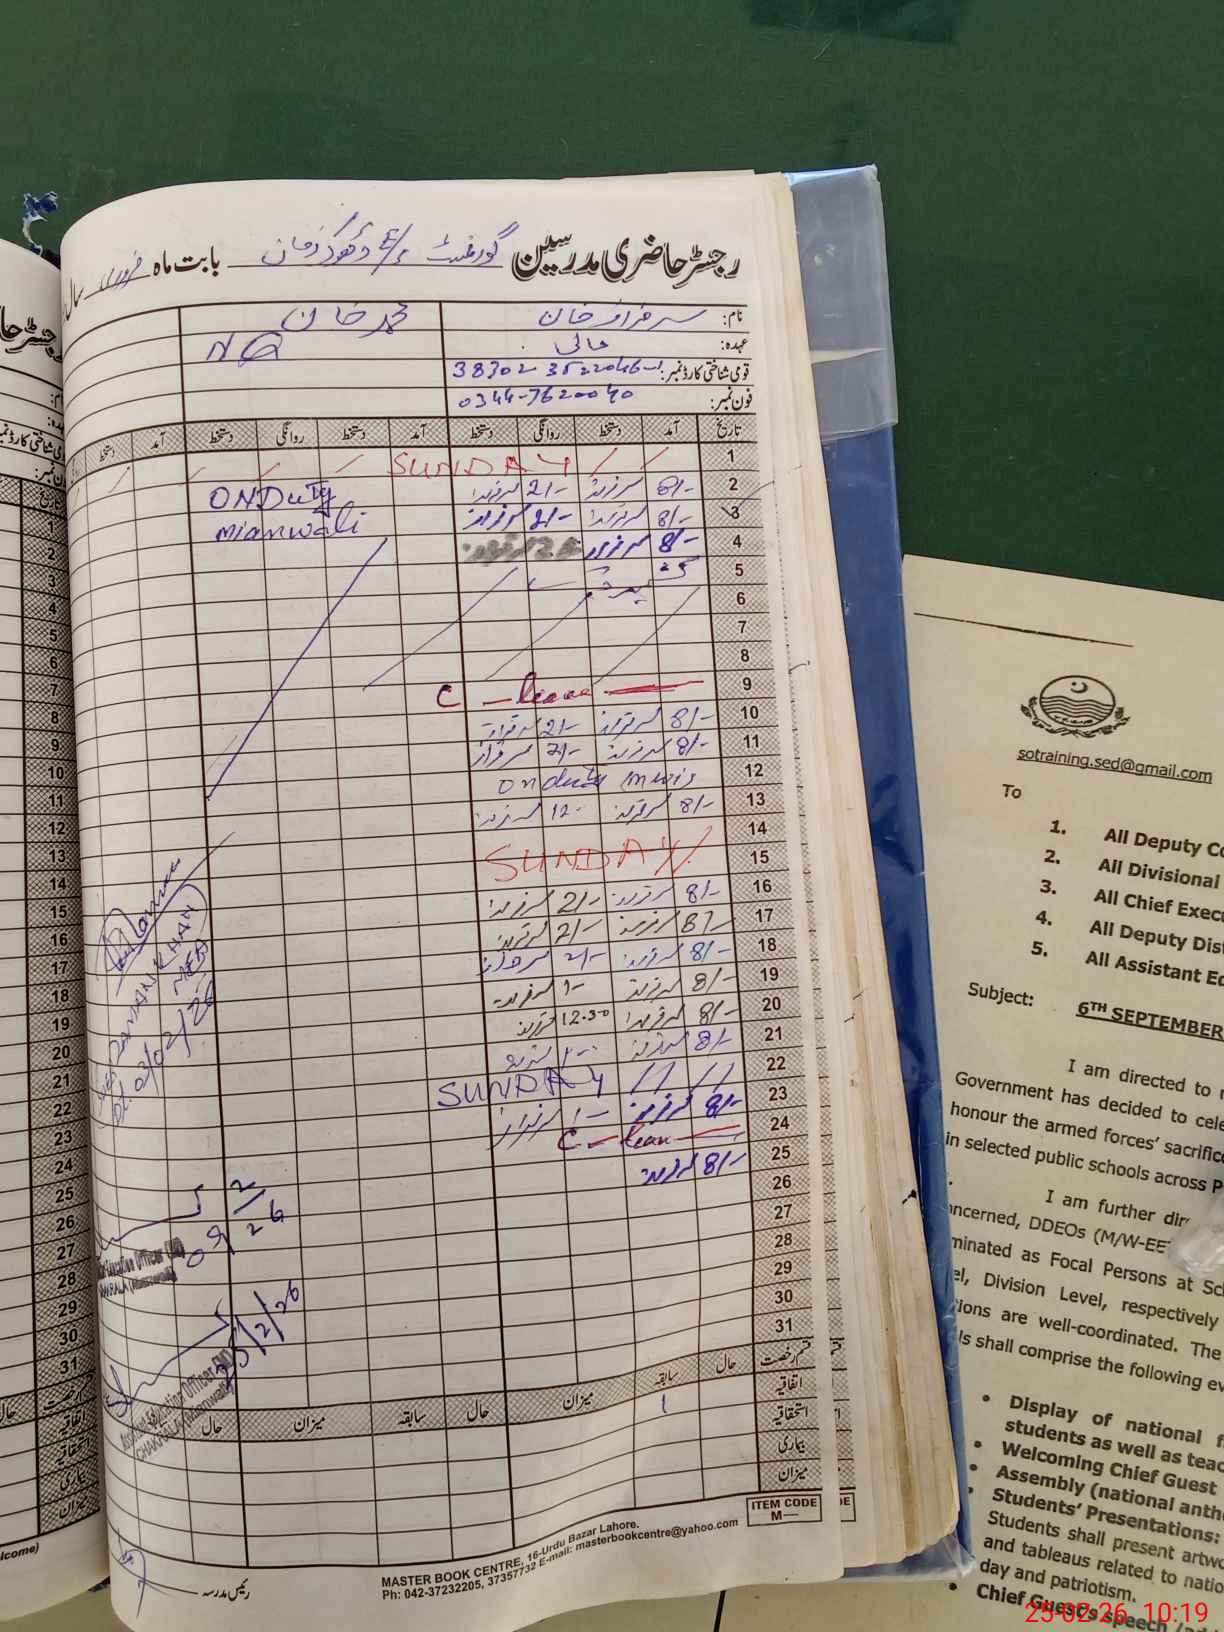 رجسٹر حاضری مدرسین گورنمنٹ بابت ماہ فروری سال
نام: سرفراز خان محمد خان
عہدہ: مالی NQ
قومی شناختی کارڈ نمبر: 38302-3522046-1
فون نمبر: 0344-7620040
تاریخ آمد دستخط روانگی دستخط آمد دستخط روانگی دستخط آمد دستخط
1 SUNDAY
2 8/- سرفراز 2/- سرفراز ONDUTY
3 8/- سرفراز 2/- سرفراز mianwali
4 8/- سرفراز
5
6
7
8
9 C - leave
10 8/- سرفراز 2/- سرفراز
11 8/- سرفراز 2/- سرفراز
12 on duty
13 8/- سرفراز 12- سرفراز
14
15 SUNDAY
16 8/- سرفراز 2/- سرفراز
17 8/- سرفراز 2/- سرفراز
18 8/- سرفراز 2/- سرفراز
19 8/- سرفراز 1- سرفراز
20 8/- سرفراز 12.30 سرفراز
21 8/- سرفراز 1- سرفراز
22 SUNDAY
23 8/- سرفراز 1- سرفراز
24 C - leav
25 8/- سرفراز
26
27
28
29
30
31
قسم رخصت حال سابقہ میزان حال سابقہ میزان حال
اتفاقیہ
استحقاقیہ 1
بیماری
میزان
KHAN
MEA
Dt. 03/02/26
09/2/26
Assistant Education Officer (M)
CHAKRALA (Mianwali)
/2/26
رئیس مدرسہ
MASTER BOOK CENTRE, 16-Urdu Bazar Lahore.
Ph: 042-37232205, 37357732 E-mail: masterbookcentre@yahoo.com
ITEM CODE
M—
sotraining.sed@gmail.com
To
1. All Deputy Co
2. All Divisional
3. All Chief Execu
4. All Deputy Dist
5. All Assistant Ed
Subject: 6TH SEPTEMBER
I am directed to r
Government has decided to cele
honour the armed forces' sacrific
in selected public schools across P
I am further dir
ncerned, DDEOs (M/W-EE
minated as Focal Persons at Sch
el, Division Level, respectively
ions are well-coordinated. The
ls shall comprise the following ev
• Display of national f
students as well as teac
• Welcoming Chief Guest
• Assembly (national anthe
• Students' Presentations:
Students shall present artwo
and tableaus related to natio
day and patriotism.
• Chief Guest's speech
25-02-26 10:19